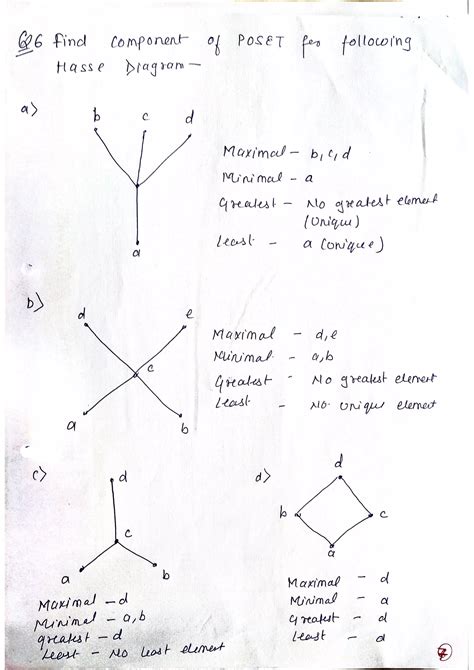 Q6 Find component of POSET for following
Hasse Diagram -
a)
b c d
a
Maximal - b, c, d
Minimal - a
Greatest - No greatest element
(Unique)
Least - a (unique)
b)
d e
c
a b
Maximal - d, e
Minimal - a, b
Greatest - No greatest element
Least - No unique element
c)
d
c
a b
Maximal - d
Minimal - a, b
greatest - d
Least - No least element
d)
d
b c
a
Maximal - d
Minimal - a
Greatest - d
Least - d